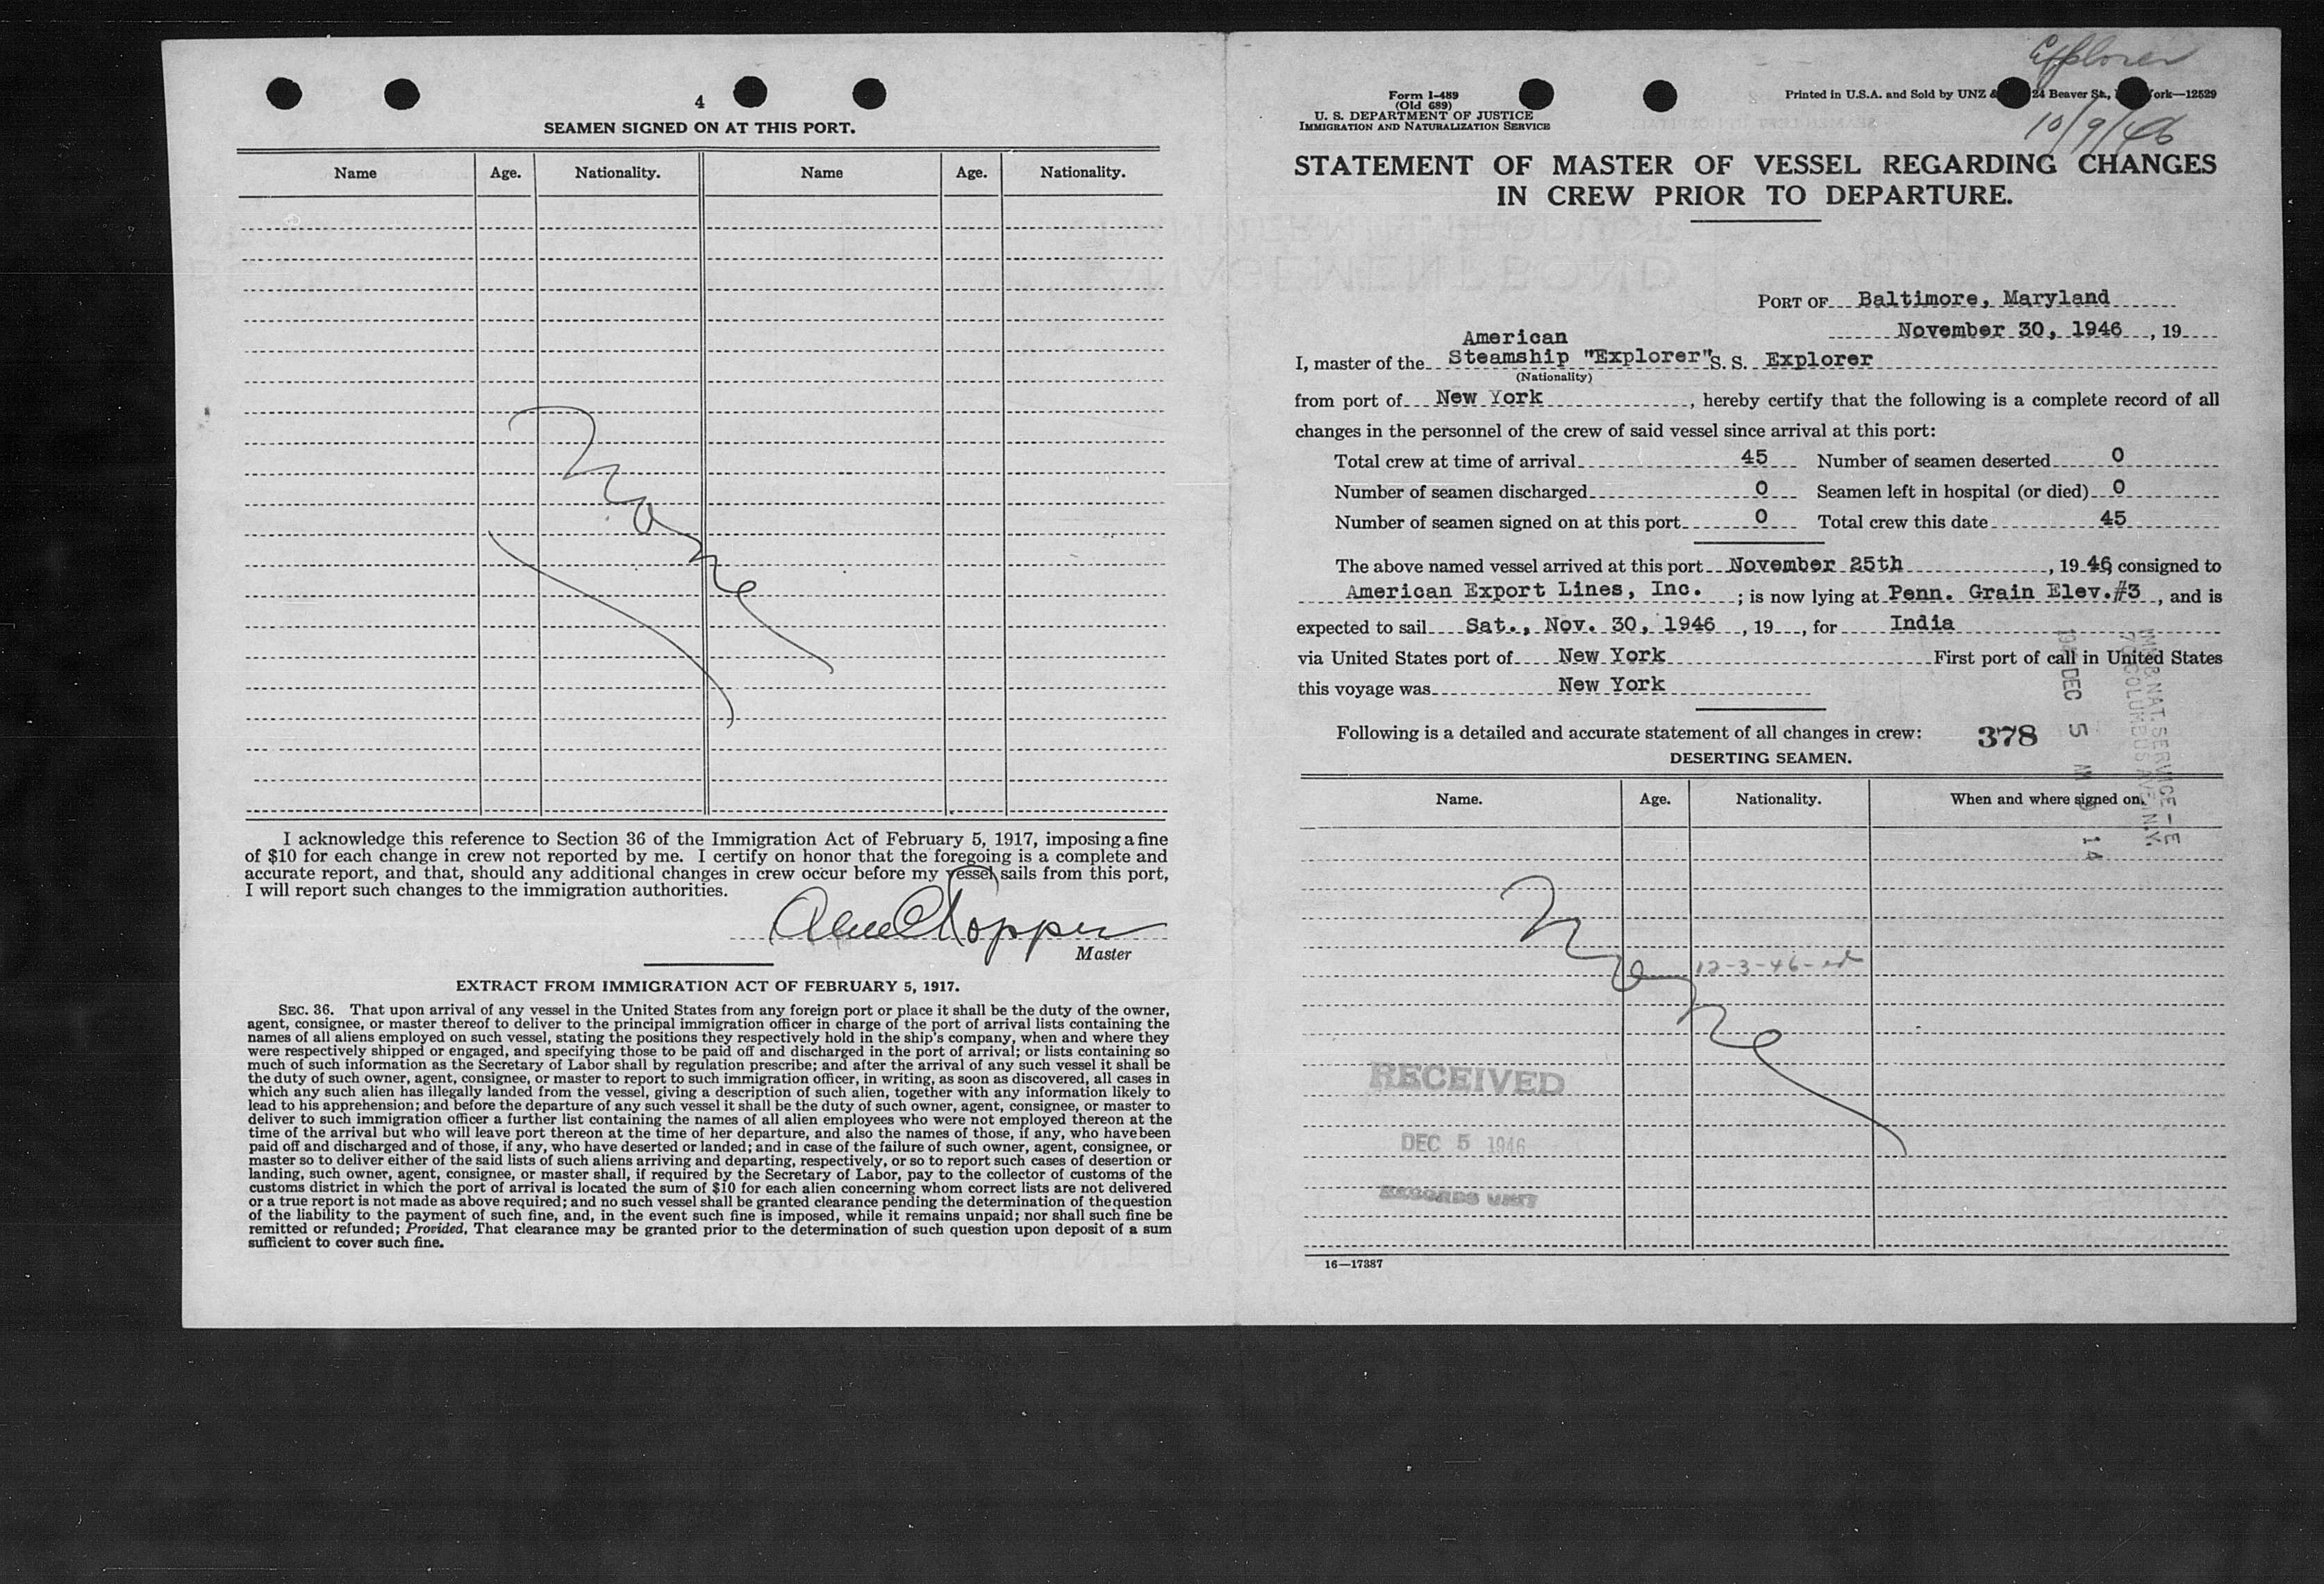 4
SEAMEN SIGNED ON AT THIS PORT.
Name Age. Nationality. Name Age. Nationality.
None
I acknowledge this reference to Section 36 of the Immigration Act of February 5, 1917, imposing a fine
of $10 for each change in crew not reported by me. I certify on honor that the foregoing is a complete and
accurate report, and that, should any additional changes in crew occur before my vessel sails from this port,
I will report such changes to the immigration authorities.
Master
EXTRACT FROM IMMIGRATION ACT OF FEBRUARY 5, 1917.
SEC. 36. That upon arrival of any vessel in the United States from any foreign port or place it shall be the duty of the owner,
agent, consignee, or master thereof to deliver to the principal immigration officer in charge of the port of arrival lists containing the
names of all aliens employed on such vessel, stating the positions they respectively hold in the ship's company, when and where they
were respectively shipped or engaged, and specifying those to be paid off and discharged in the port of arrival; or lists containing so
much of such information as the Secretary of Labor shall by regulation prescribe; and after the arrival of any such vessel it shall be
the duty of such owner, agent, consignee, or master to report to such immigration officer, in writing, as soon as discovered, all cases in
which any such alien has illegally landed from the vessel, giving a description of such alien, together with any information likely to
lead to his apprehension; and before the departure of any such vessel it shall be the duty of such owner, agent, consignee, or master to
deliver to such immigration officer a further list containing the names of all alien employees who were not employed thereon at the
time of the arrival but who will leave port thereon at the time of her departure, and also the names of those, if any, who have been
paid off and discharged and of those, if any, who have deserted or landed; and in case of the failure of such owner, agent, consignee, or
master so to deliver either of the said lists of such aliens arriving and departing, respectively, or so to report such cases of desertion or
landing, such owner, agent, consignee, or master shall, if required by the Secretary of Labor, pay to the collector of customs of the
customs district in which the port of arrival is located the sum of $10 for each alien concerning whom correct lists are not delivered
or a true report is not made as above required; and no such vessel shall be granted clearance pending the determination of the question
of the liability to the payment of such fine, and, in the event such fine is imposed, while it remains unpaid; nor shall such fine be
remitted or refunded; Provided, That clearance may be granted prior to the determination of such question upon deposit of a sum
sufficient to cover such fine.
Explorer
10/9/46
Form I-489
(Old 689)
U. S. DEPARTMENT OF JUSTICE
IMMIGRATION AND NATURALIZATION SERVICE
Printed in U.S.A. and Sold by UNZ & 24 Beaver St., ork—12529
STATEMENT OF MASTER OF VESSEL REGARDING CHANGES
IN CREW PRIOR TO DEPARTURE.
PORT OF Baltimore, Maryland
November 30, 1946, 19
American
I, master of the Steamship "Explorer" S. S. Explorer
(Nationality)
from port of New York, hereby certify that the following is a complete record of all
changes in the personnel of the crew of said vessel since arrival at this port:
Total crew at time of arrival 45 Number of seamen deserted 0
Number of seamen discharged 0 Seamen left in hospital (or died) 0
Number of seamen signed on at this port 0 Total crew this date 45
The above named vessel arrived at this port November 25th, 1946, consigned to
American Export Lines, Inc. ; is now lying at Penn. Grain Elev.#3, and is
expected to sail Sat., Nov. 30, 1946, 19, for India
via United States port of New York First port of call in United States
this voyage was New York
Following is a detailed and accurate statement of all changes in crew: 378
DESERTING SEAMEN.
Name. Age. Nationality. When and where signed on.
IMM & NAT. SERVICE - E
70 COLUMBUS AVE N.Y.
DEC 5 AM 9 14
None
12-3-46-ed
RECEIVED
DEC 5 1946
RECORDS UNIT
16—17387